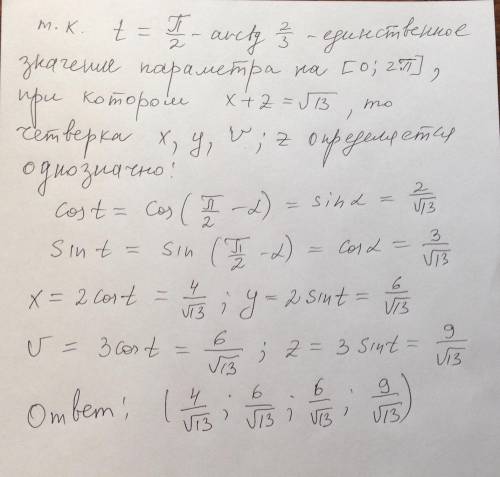 т.к. t = π/2 - arctg 2/3 - единственное
значение параметра на [0; 2π],
при котором x+z = √13, то
четверка x, y, v; z определяется
однозначно:
cos t = cos(π/2 - α) = sin α = 2/√13
sin t = sin(π/2 - α) = cos α = 3/√13
x = 2cos t = 4/√13; y = 2 sin t = 6/√13
v = 3cos t = 6/√13; z = 3 sin t = 9/√13
Ответ: (4/√13; 6/√13; 6/√13; 9/√13)